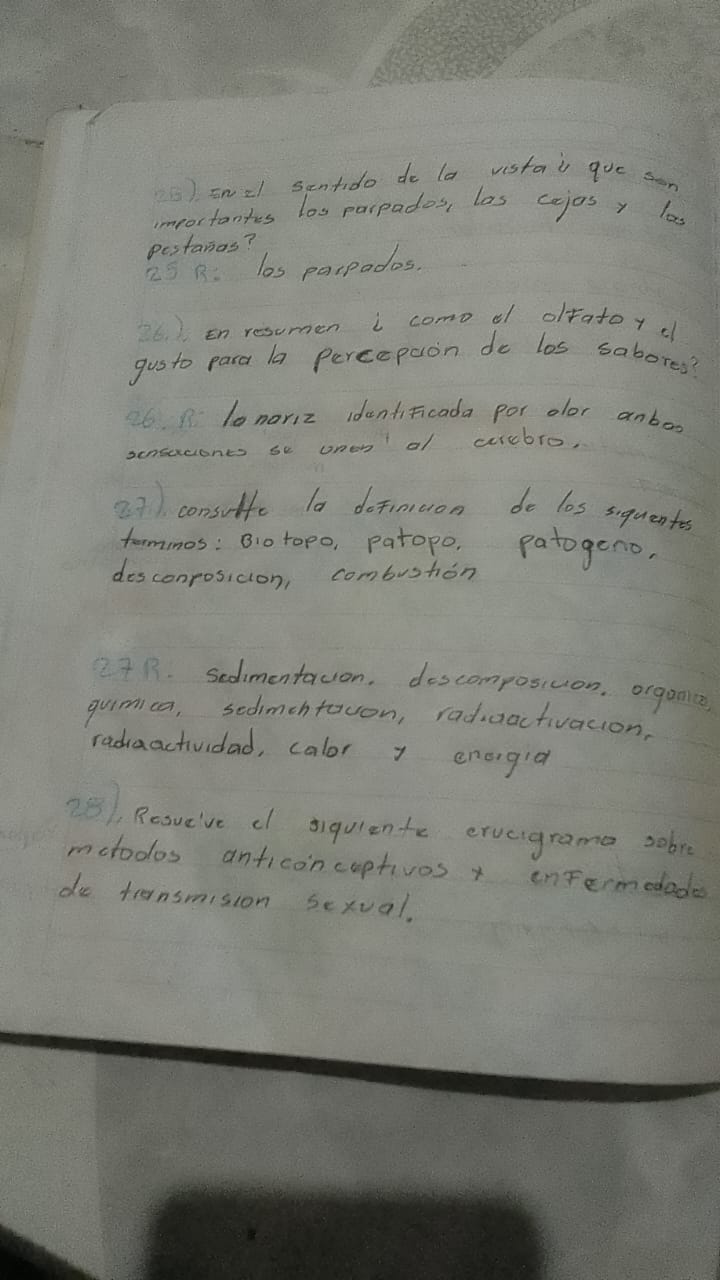 25) En el sentido de la vista ¿ que son
importantes los parpados, las cejas y las
pestañas?
25 R: los parpados.
26.). En resumen ¿ como el olfato y el
gusto para la Percepción de los sabores?
26. R: la nariz identificada por olor anbas
sensaciones se unen al cerebro.
27). consulte la definicion de los siguentes
terminos: Biotopo, patopo, patogeno,
desconposicion, combustión
27R. sedimentacion. descomposicion. organica,
quimica, sedimentacion, radiaactivacion,
radiaactividad, calor y energia
28). Resuelve el siguiente crucigrama sobre
metodos anticonceptivos y enfermedades
de transmision sexual.